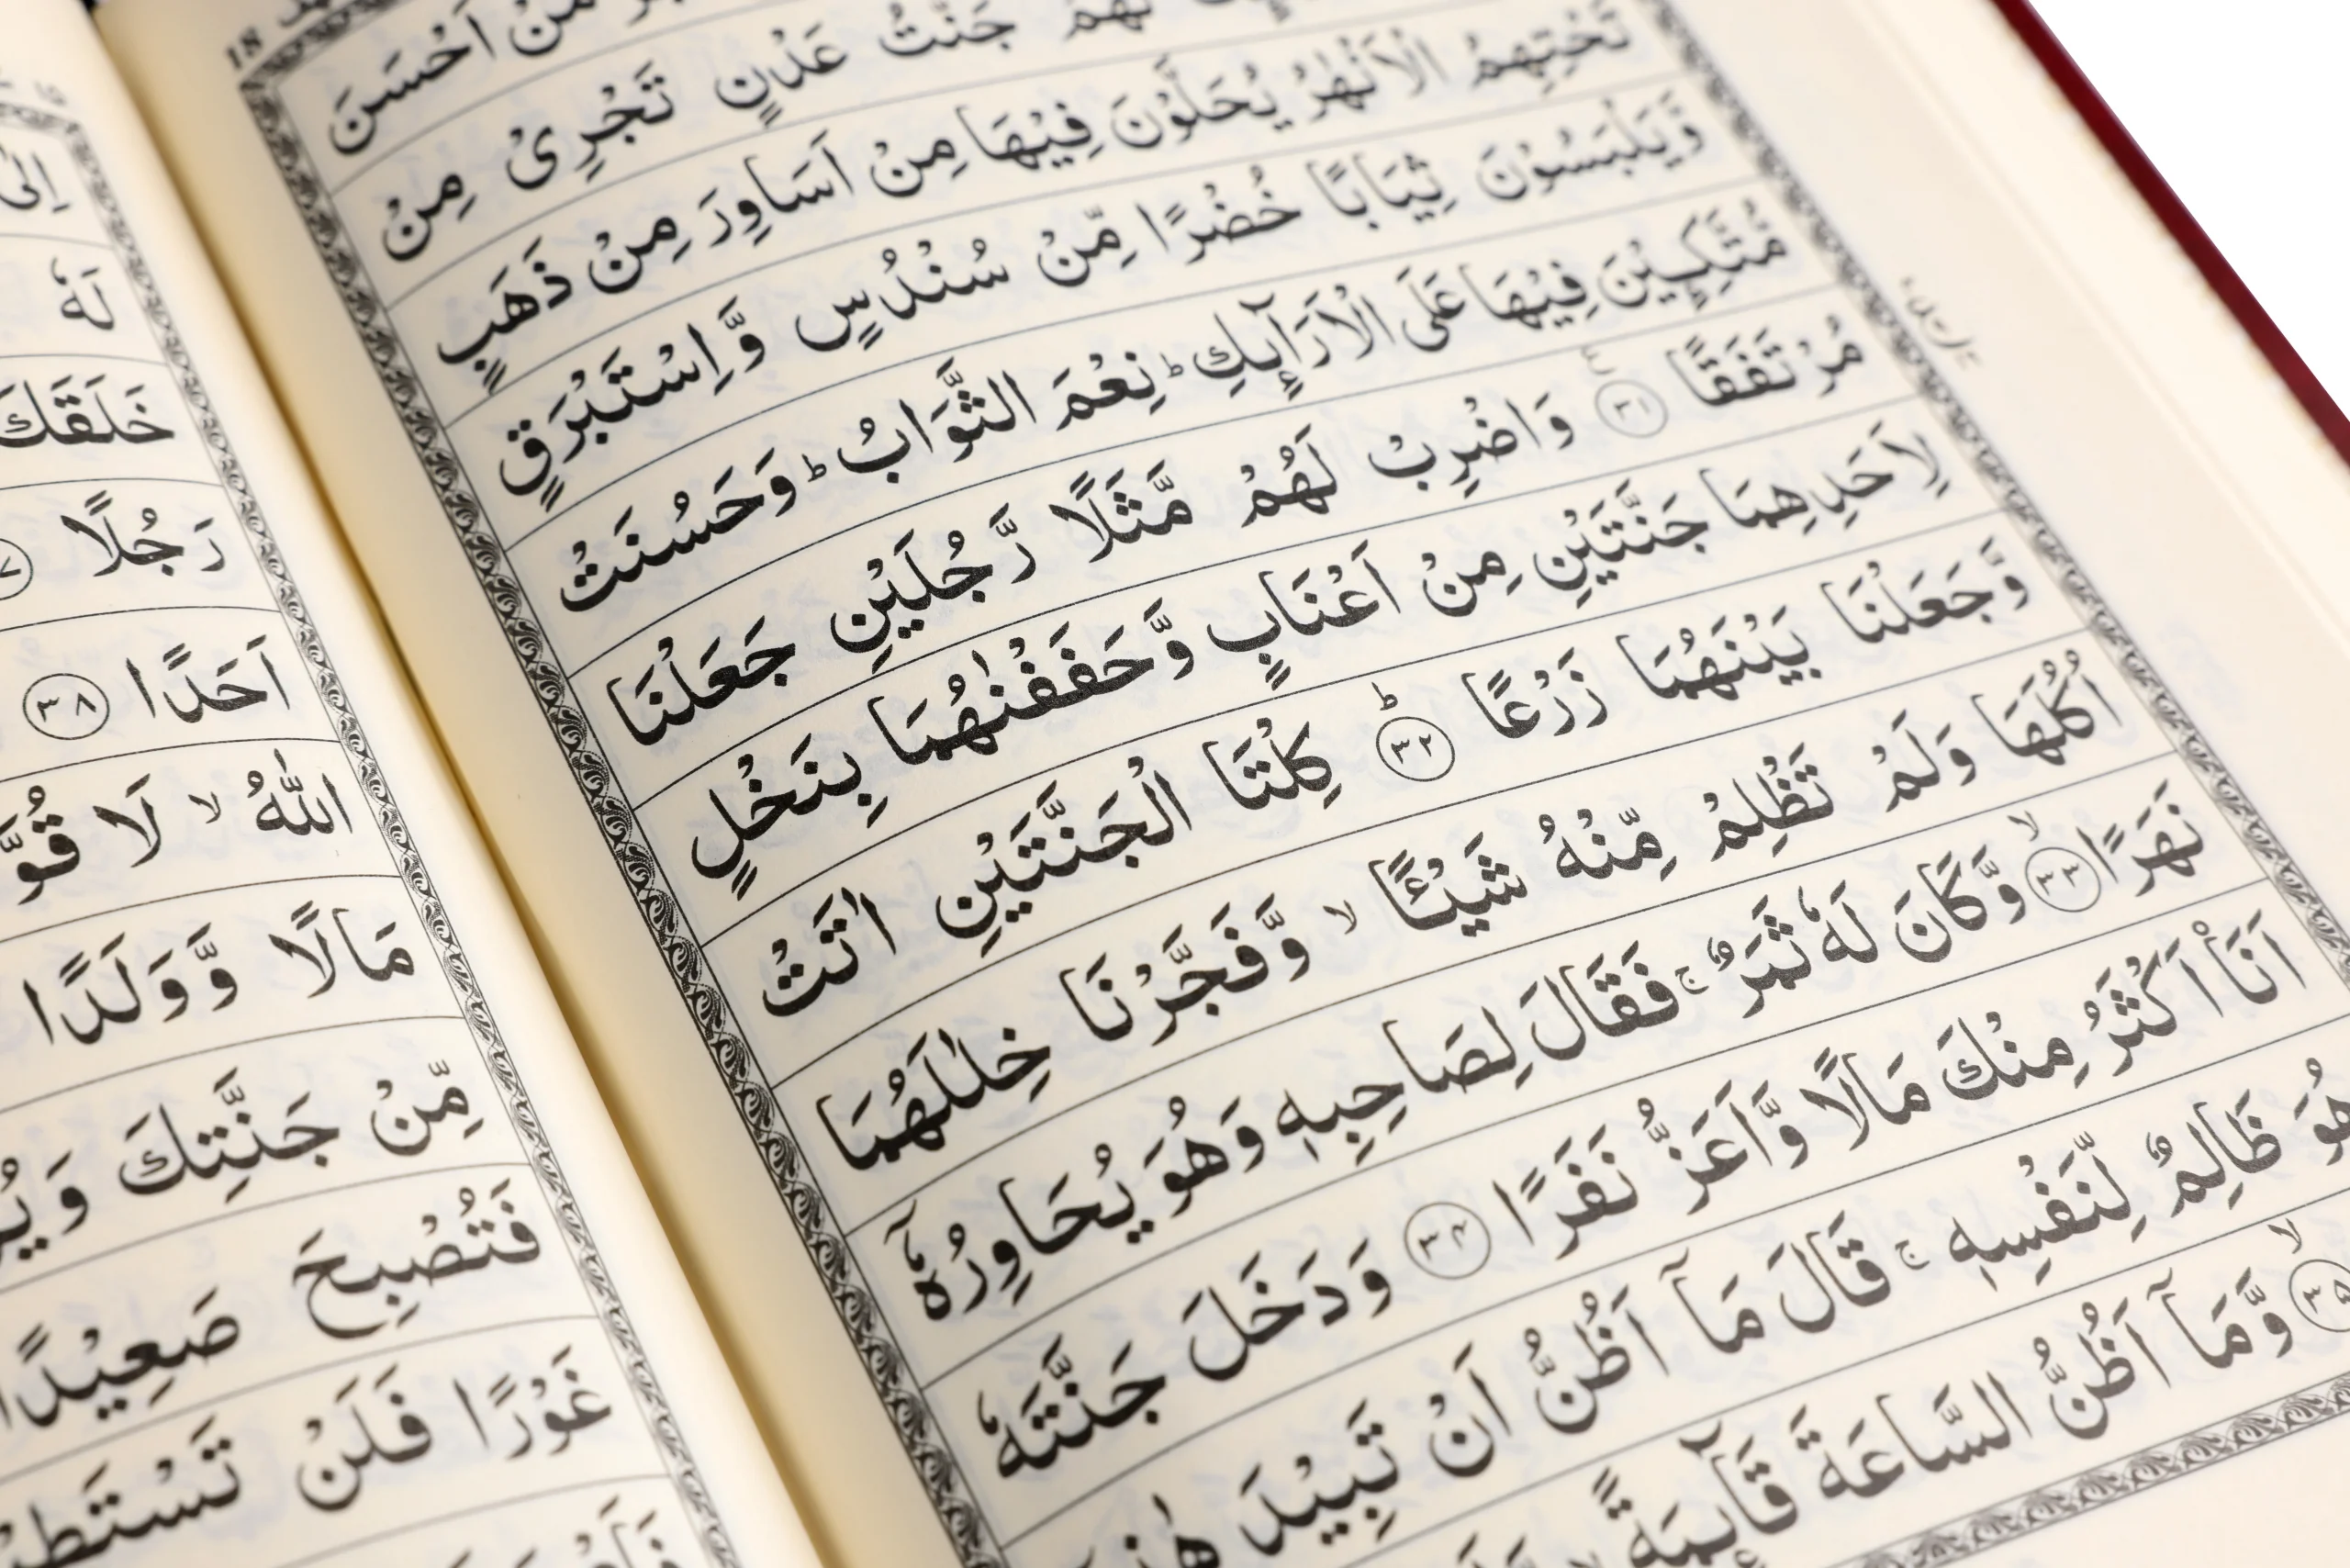 مَنْ اَحْسَنَ
لَهُمْ جَنّٰتُ عَدْنٍ تَجْرِیْ مِنْ
تَحْتِهِمُ الْاَنْهٰرُ یُحَلَّوْنَ فِیْهَا مِنْ اَسَاوِرَ مِنْ ذَهَبٍ
وَّیَلْبَسُوْنَ ثِیَابًا خُضْرًا مِّنْ سُنْدُسٍ وَّاِسْتَبْرَقٍ
مُّتَّكِـِٕیْنَ فِیْهَا عَلَی الْاَرَآىِٕكِ ؕ نِعْمَ الثَّوَابُ ؕ وَحَسُنَتْ
مُرْتَفَقًا ۝۳۱ وَاضْرِبْ لَهُمْ مَّثَلًا رَّجُلَیْنِ جَعَلْنَا
لِاَحَدِهِمَا جَنَّتَیْنِ مِنْ اَعْنَابٍ وَّحَفَفْنٰهُمَا بِنَخْلٍ
وَّجَعَلْنَا بَیْنَهُمَا زَرْعًا ؕ۝۳۲ كِلْتَا الْجَنَّتَیْنِ اٰتَتْ
اُكُلَهَا وَلَمْ تَظْلِمْ مِّنْهُ شَیْـًٔا ۙ وَّفَجَّرْنَا خِلٰلَهُمَا
نَهَرًا ۙ۝۳۳ وَّكَانَ لَهٗ ثَمَرٌ ۚ فَقَالَ لِصَاحِبِهٖ وَهُوَ یُحَاوِرُهٗۤ
اَنَا اَكْثَرُ مِنْكَ مَالًا وَّاَعَزُّ نَفَرًا ۝۳۴ وَدَخَلَ جَنَّتَهٗ
هُوَ ظَالِمٌ لِّنَفْسِهٖ ۚ قَالَ مَاۤ اَظُنُّ اَنْ تَبِیْدَ هٰذِهٖۤ
ۙ۝۳۵ وَّمَاۤ اَظُنُّ السَّاعَةَ قَآىِٕمَةً
اِلٰی
لَهٗ
خَلَقَكَ
رَجُلًا
اَحَدًا ۝۳۸
اللّٰهُ ۙ لَا قُوَّ
مَالًا وَّوَلَدًا
مِّنْ جَنَّتِكَ وَیُ
فَتُصْبِحَ صَعِیْدًا
غَوْرًا فَلَنْ تَسْتَطِ